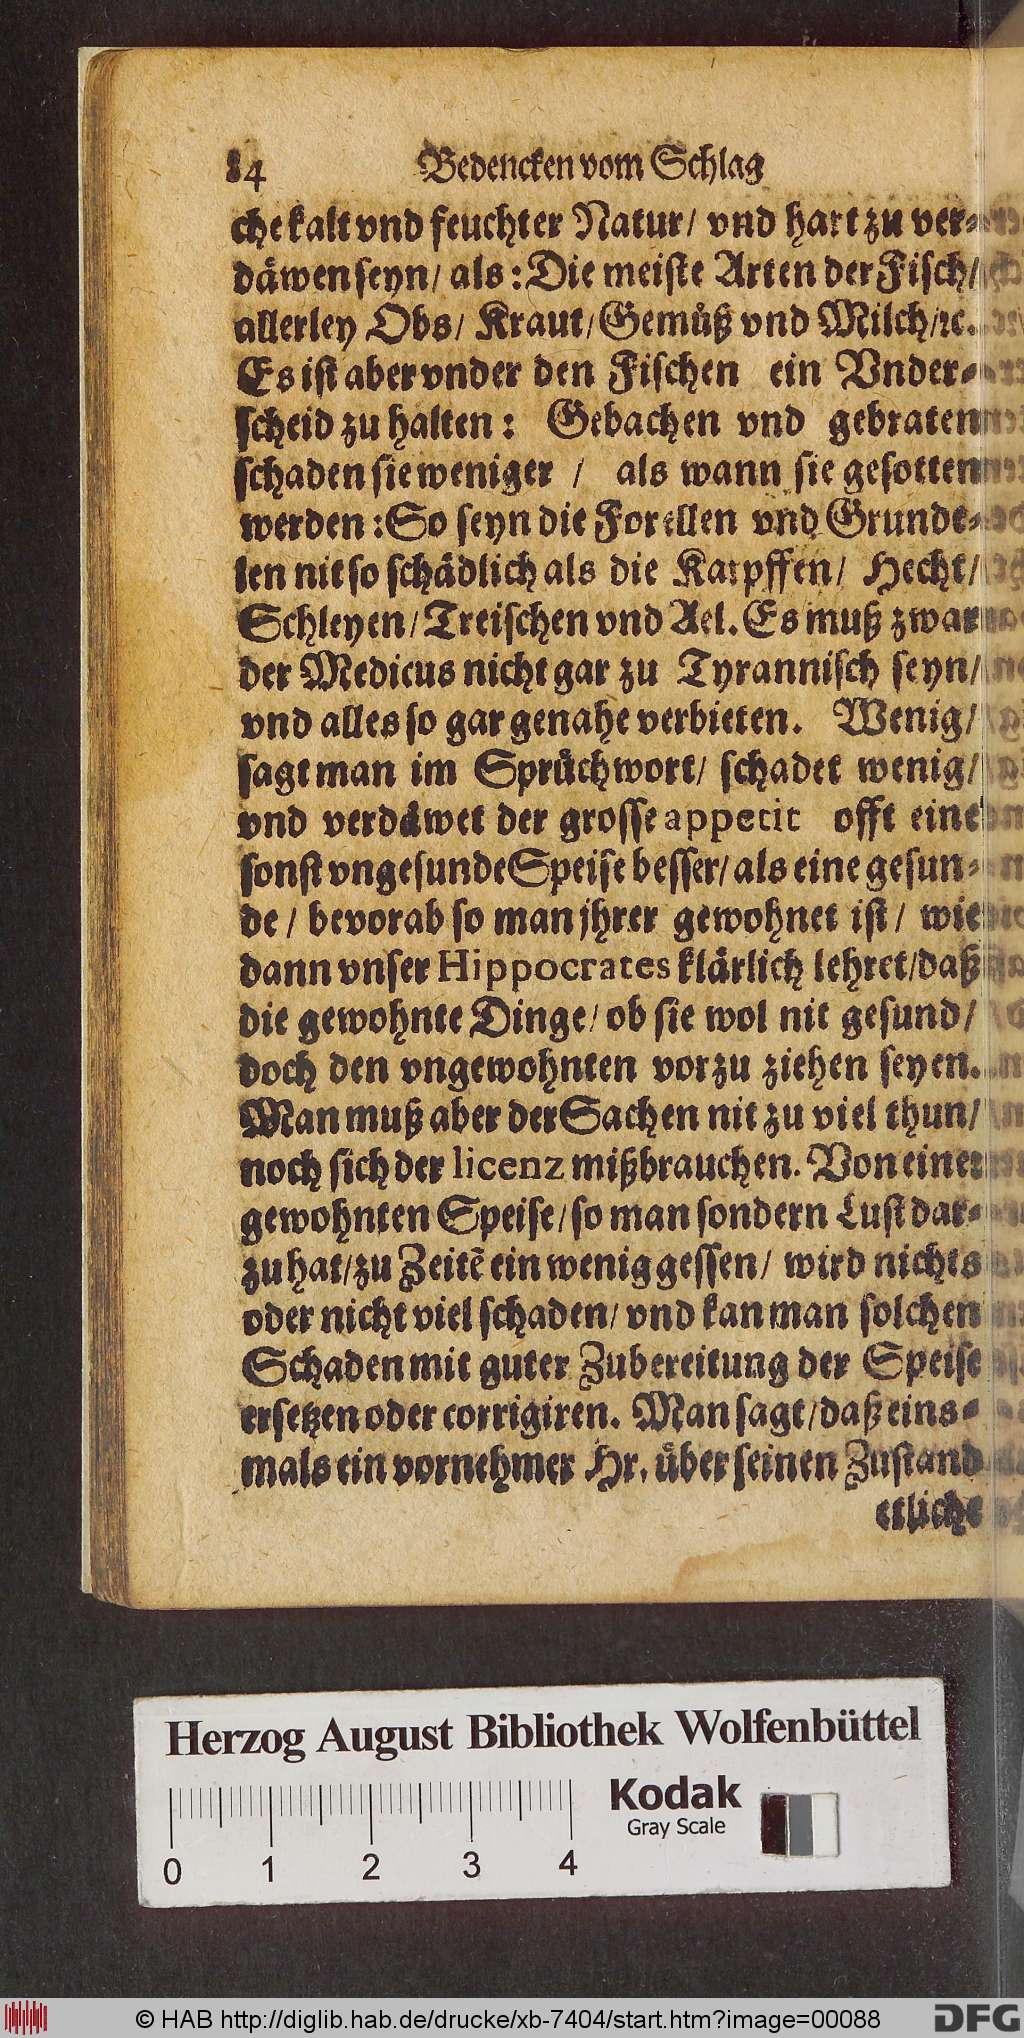 84 Bedencken vom Schlag
che kalt vnd feuchter Natur/ vnd hart zu ver-
däwen seyn/ als: Die meiste Arten der Fisch/
allerley Obs/ Kraut/ Gemuͤß vnd Milch/ ꝛc.
Es ist aber vnder den Fischen ein Vnder-
scheid zu halten: Gebachen vnd gebraten
schaden sie weniger / als wann sie gesotten
werden: So seyn die Forellen vnd Grunde-
len nit so schädlich als die Karpffen/ Hecht/
Schleyen/ Treischen vnd Ael. Es muß zwar
der Medicus nicht gar zu Tyrannisch seyn/
vnd alles so gar genahe verbieten. Wenig/
sagt man im Spruͤchwort/ schadet wenig/
vnd verdäwet der grosse appetit offt eine
sonst vngesunde Speise besser/ als eine gesun-
de / bevorab so man jhrer gewohnet ist/ wie
dann vnser Hippocrates klärlich lehret/ daß
die gewohnte Dinge/ ob sie wol nit gesund/
doch den vngewohnten vorzu ziehen seyen.
Man muß aber der Sachen nit zu viel thun/
noch sich der licenz mißbrauchen. Von einer
gewohnten Speise/ so man sondern Lust dar-
zu hat/ zu Zeitē ein wenig gessen/ wird nichts
oder nicht viel schaden/ vnd kan man solchen
Schaden mit guter Zubereitung der Speise
ersetzen oder corrigiren. Man sagt/ daß eins-
mals ein vornehmer Hr. uͤber seinen Zustand
etliche
Herzog August Bibliothek Wolfenbüttel
Kodak
Gray Scale
0 1 2 3 4
© HAB http://diglib.hab.de/drucke/xb-7404/start.htm?image=00088
DFG